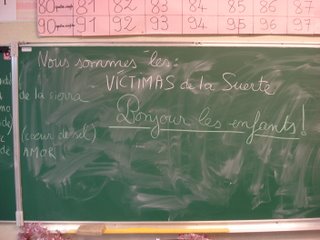 80 81 82 83 84 85 86 87
90 91 92 93 94 95 96 97
Nous sommes les:
- VICTIMAS de la Suerte
de la sierra
Bonjour les enfants!
(cœur de sel)
de AMOR